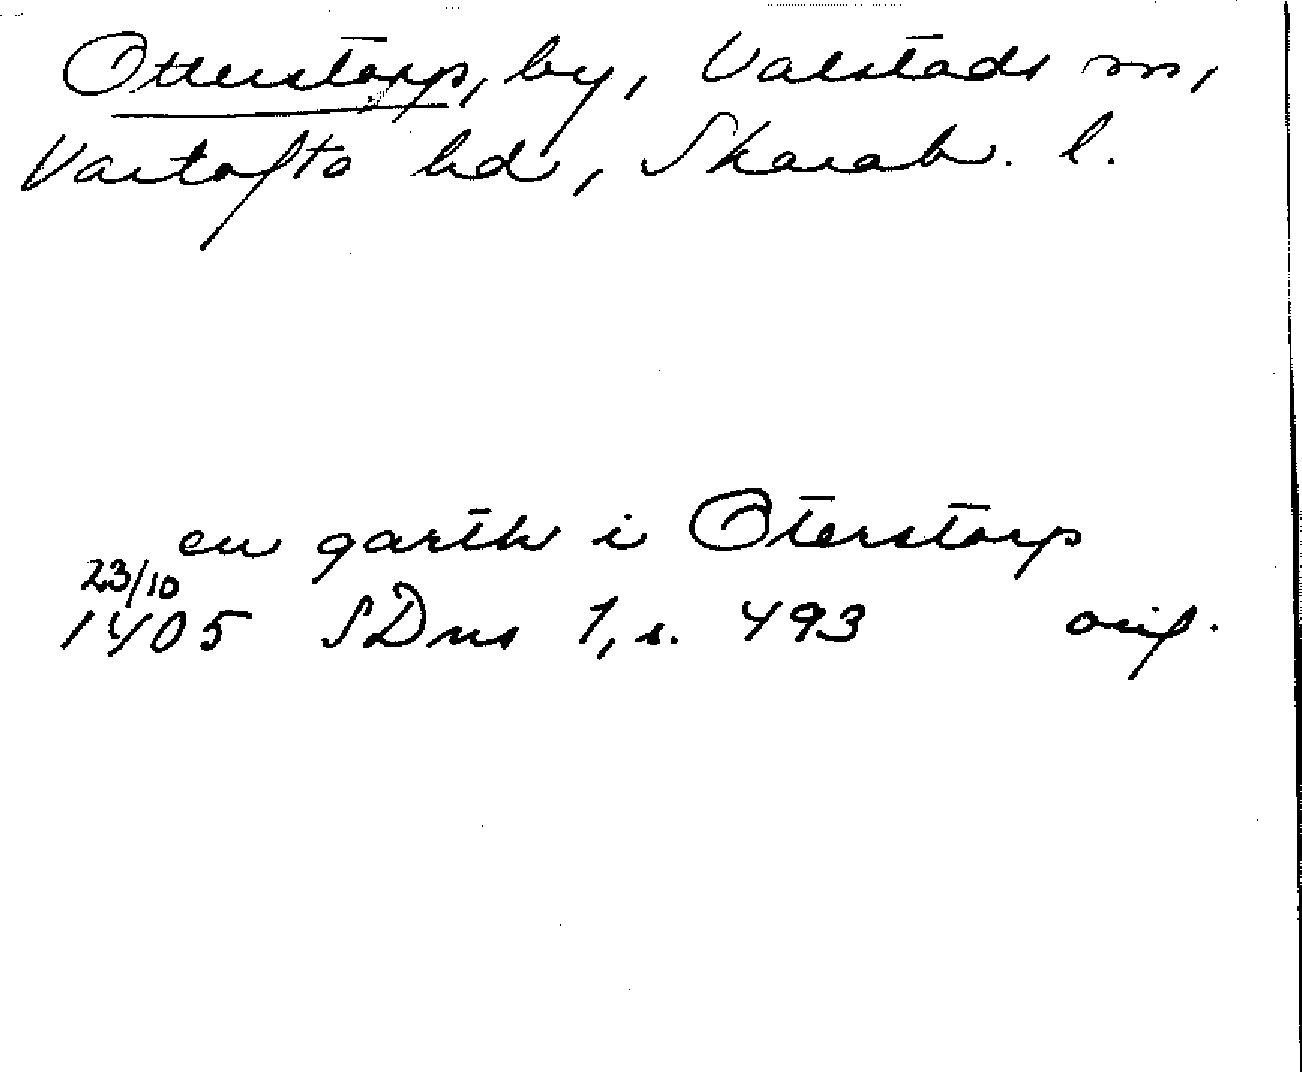 Otterstorp, by, Valstads sn,
Vartofto hd, Skarab. l.
en garth i Oterstorp
23/10
1405 SDns 1, s. 493 orig.